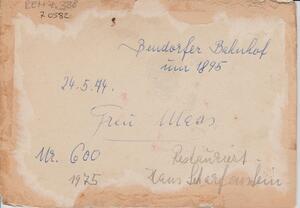 70582
Bendorfer Bahnhof
um 1895
24.5.74.
Frau Maas
Nr. 600
1975
Restauriert
Hans Scharfenstein